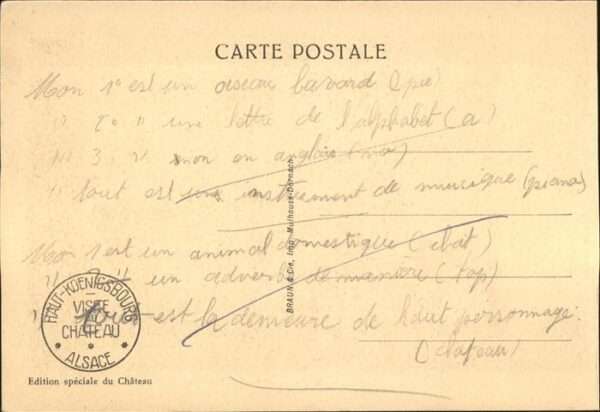 CARTE POSTALE
Mon 1º est un oiseau bavard (pie)
" 2º " une lettre de l'alphabet (a)
" 3 " non en anglais (no)
" tout est un instrument de musique (piano)
Mon 1 est un animal domestique (chat)
" 2 " un adverbe de manière (top)
tout est la demeure de haut personnage.
(chateau)
HAUT-KOENIGSBOURG
VISITE
CHATEAU
ALSACE
BRAUN & Cie, Imp. Mulhouse-Dornach
Edition spéciale du Château